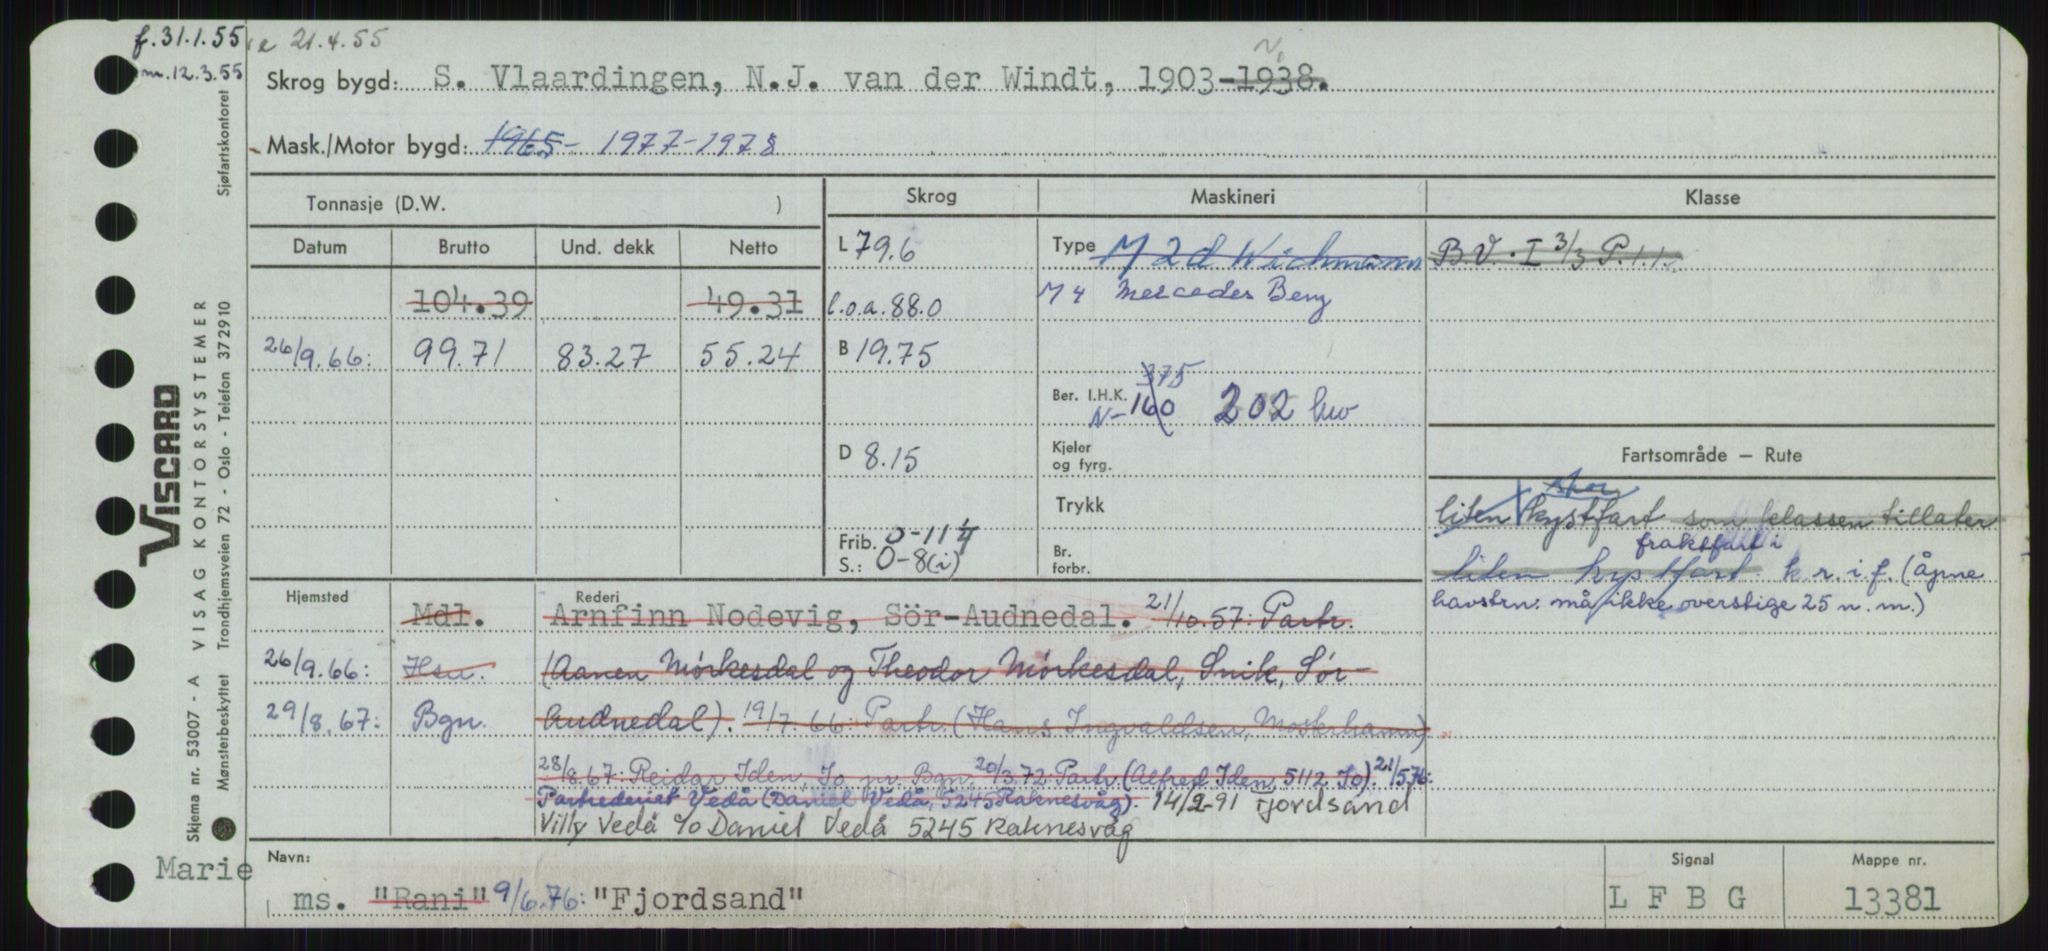 f.31.1.55 e 21.4.55
m.12.3.55
Skrog bygd: S. Vlaardingen, N.J. van der Windt, 1903-1938.
N.
Mask./Motor bygd: 1965- 1977-1978
Tonnasje (D.W. )
Skrog
Maskineri
Klasse
Datum Brutto Und. dekk Netto
L 79.6
Type M 2d Wichmann
B.V. I 3/3 P.1.1.
104.39 49.31
l.o.a. 88.0
M 4 Mercedes Benz
26/9.66: 99.71 83.27 55.24
B 19.75
375
Ber. I.H.K. N-160 202 hw
D 8.15
Kjeler
og fyrg.
Trykk
Frib. 0-11 4
S.: 0-8(i)
Br.
forbr.
Fartsområde – Rute
stor
liten kystfart som klassen tillater
fraktfart i
liten kystfart. k r. i f. (åpne
havstrn. må ikke overstige 25 n.m.)
Hjemsted
Rederi
Mdl. Arnfinn Nodevig, Sör-Audnedal. 21/10.57: Partr.
26/9.66: Hsu. (Aanen Mörkesdal og Theodor Mörkesdal, Snik, Sör-
29/8.67: Bgn. Audnedal). 19/7.66: Partr. (Hans Ingvaldsen, Moskrhamn)
28/8.67: Reidar Iden, Io pr. Bgn. 20/3.72: Partr. (Alfred Iden, 5112 Io). 21/5.76:
Partrederiet Vedå (Daniel Vedå, 5245 Raknesvåg). 14/2-91 Fjordsand
Villy Vedå c/o Daniel Vedå 5245 Raknesvåg
Navn:
Marie
ms. "Rani" 9/6.76: "Fjordsand"
Signal
L F B G
Mappe nr.
13381
VISCARD
VISAG KONTORSYSTEMER
Skjema nr. 53007 - A
Mønsterbeskyttet
Trondhjemsveien 72 - Oslo - Telefon 37 29 10
Sjøfartskontoret